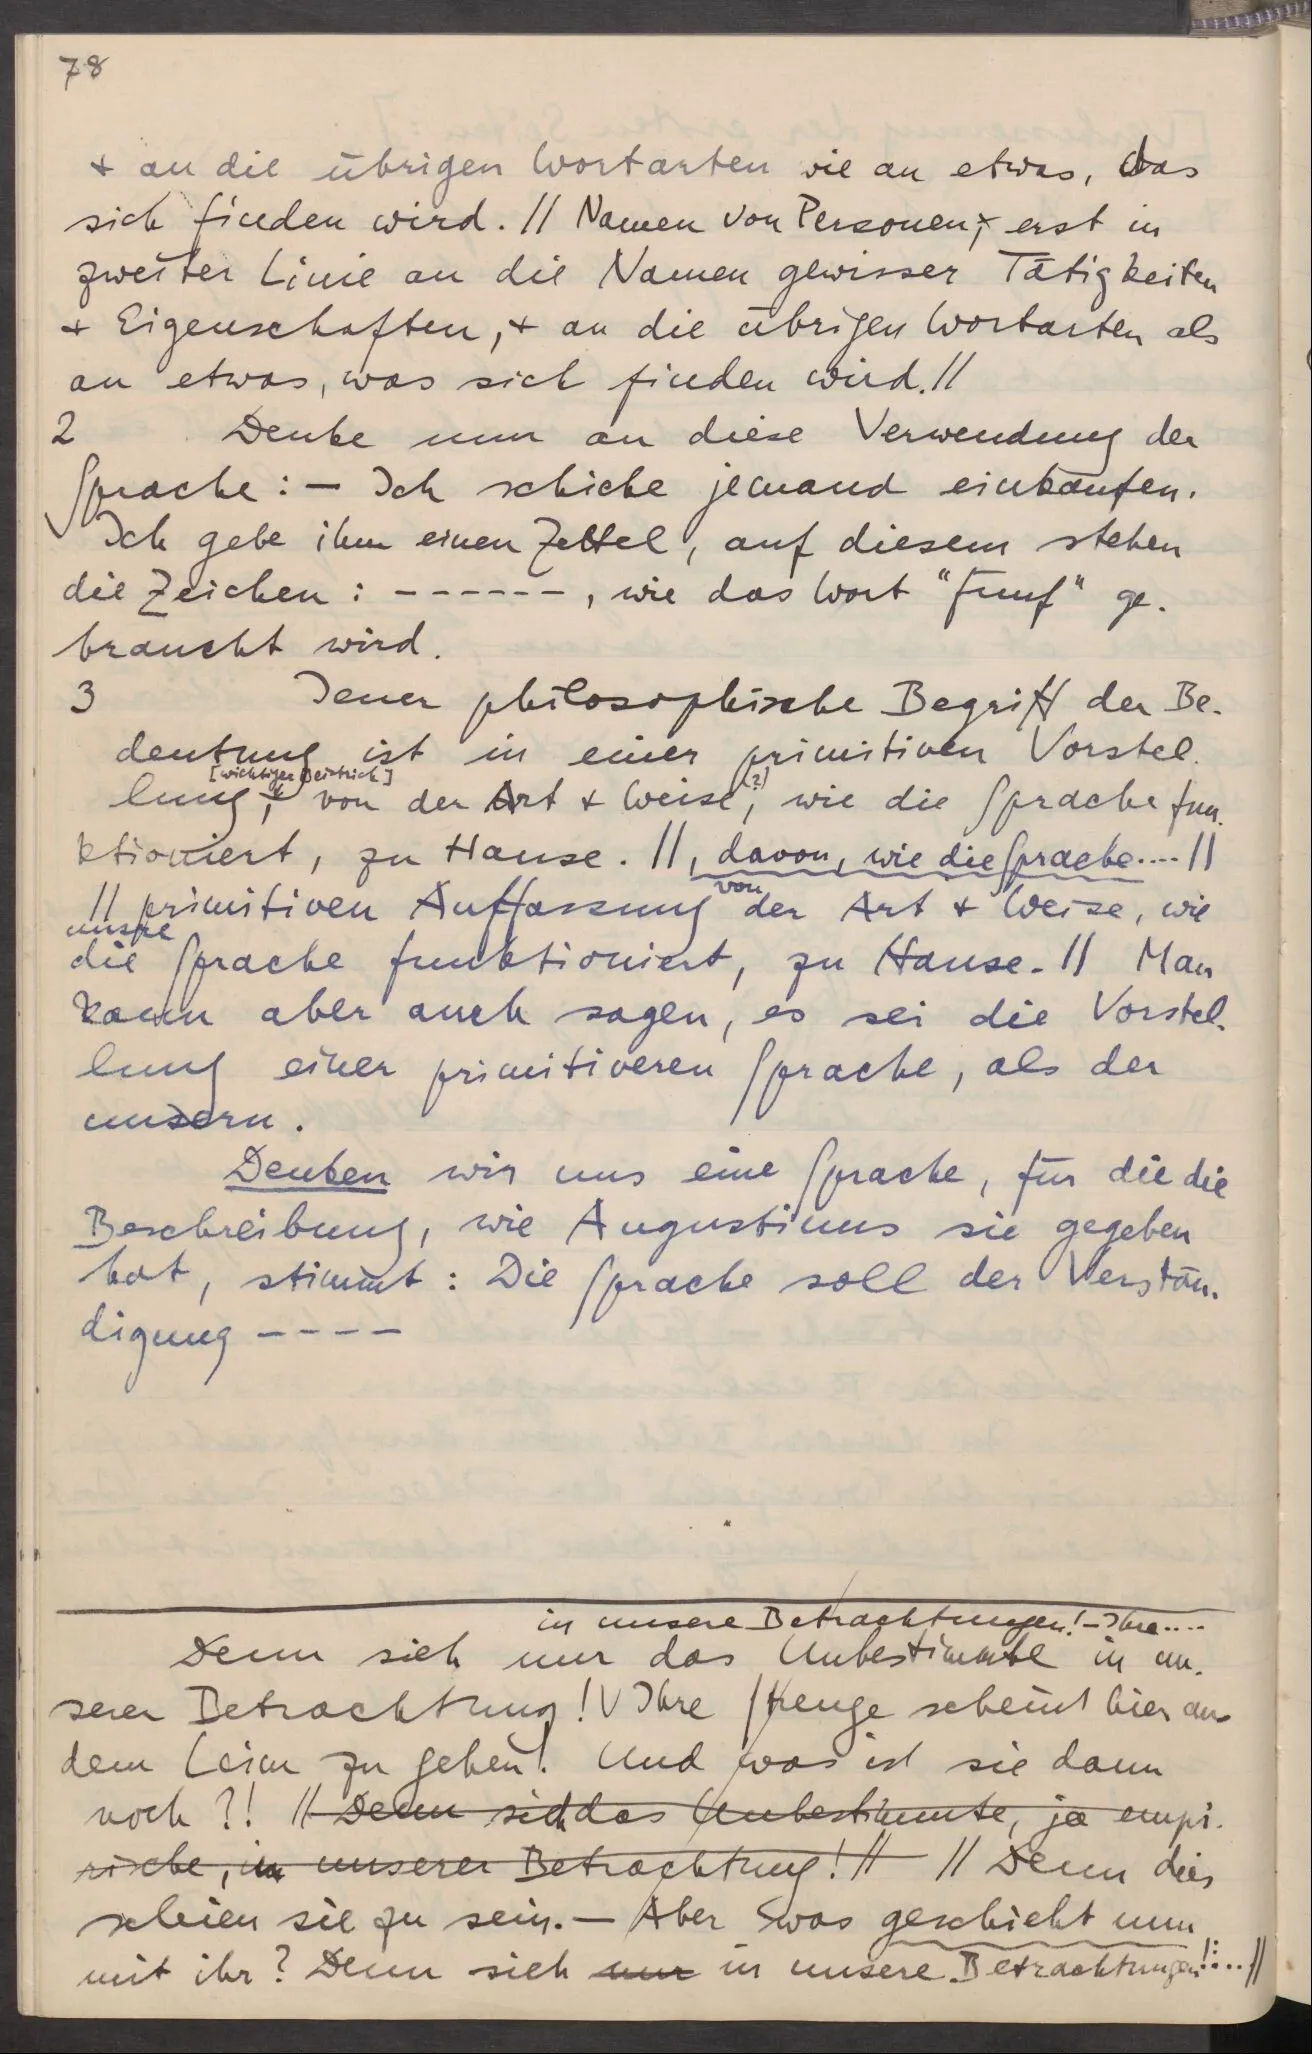 78
+ an die übrigen Wortarten wie an etwas, das
sich finden wird. // Namen von Personen, + erst in
zweiter Linie an die Namen gewisser Tätigkeiten
+ Eigenschaften, + an die übrigen Wortarten als
an etwas, was sich finden wird. //
2 Denke nun an diese Verwendung der
Sprache: – Ich schicke jemand einkaufen.
Ich gebe ihm einen Zettel, auf diesem stehen
die Zeichen: ------, wie das Wort "fünf" ge-
braucht wird.
3 Jener philosophische Begriff der Be-
deutung ist in einer primitiven Vorstel-
[wichtiger Beistrich] (?)
lung, von der Art + Weise, wie die Sprache fun-
ktioniert, zu Hause. //, davon, wie die Sprache....//
// primitiven Auffassung von der Art + Weise, wie
unsre
die Sprache funktioniert, zu Hause. // Man
kann aber auch sagen, es sei die Vorstel-
lung einer primitiveren Sprache, als der
unsern.
Denken wir uns eine Sprache, für die die
Beschreibung, wie Augustinus sie gegeben
hat, stimmt: Die Sprache soll der Verstän-
digung ----
in unsere Betrachtungen! – Ihre....
Denn sieh nur das Unbestimmte in un-
serer Betrachtung! Ihre Strenge scheint hier aus
dem Leim zu gehen! Und was ist sie dann
noch?! // Denn sieh das Unbestimmte, ja empi-
rische, in unserer Betrachtung! // // Denn dies
schien sie zu sein. – Aber was geschieht nun
mit ihr? Denn sieh nur in unsere Betrachtungen!....//